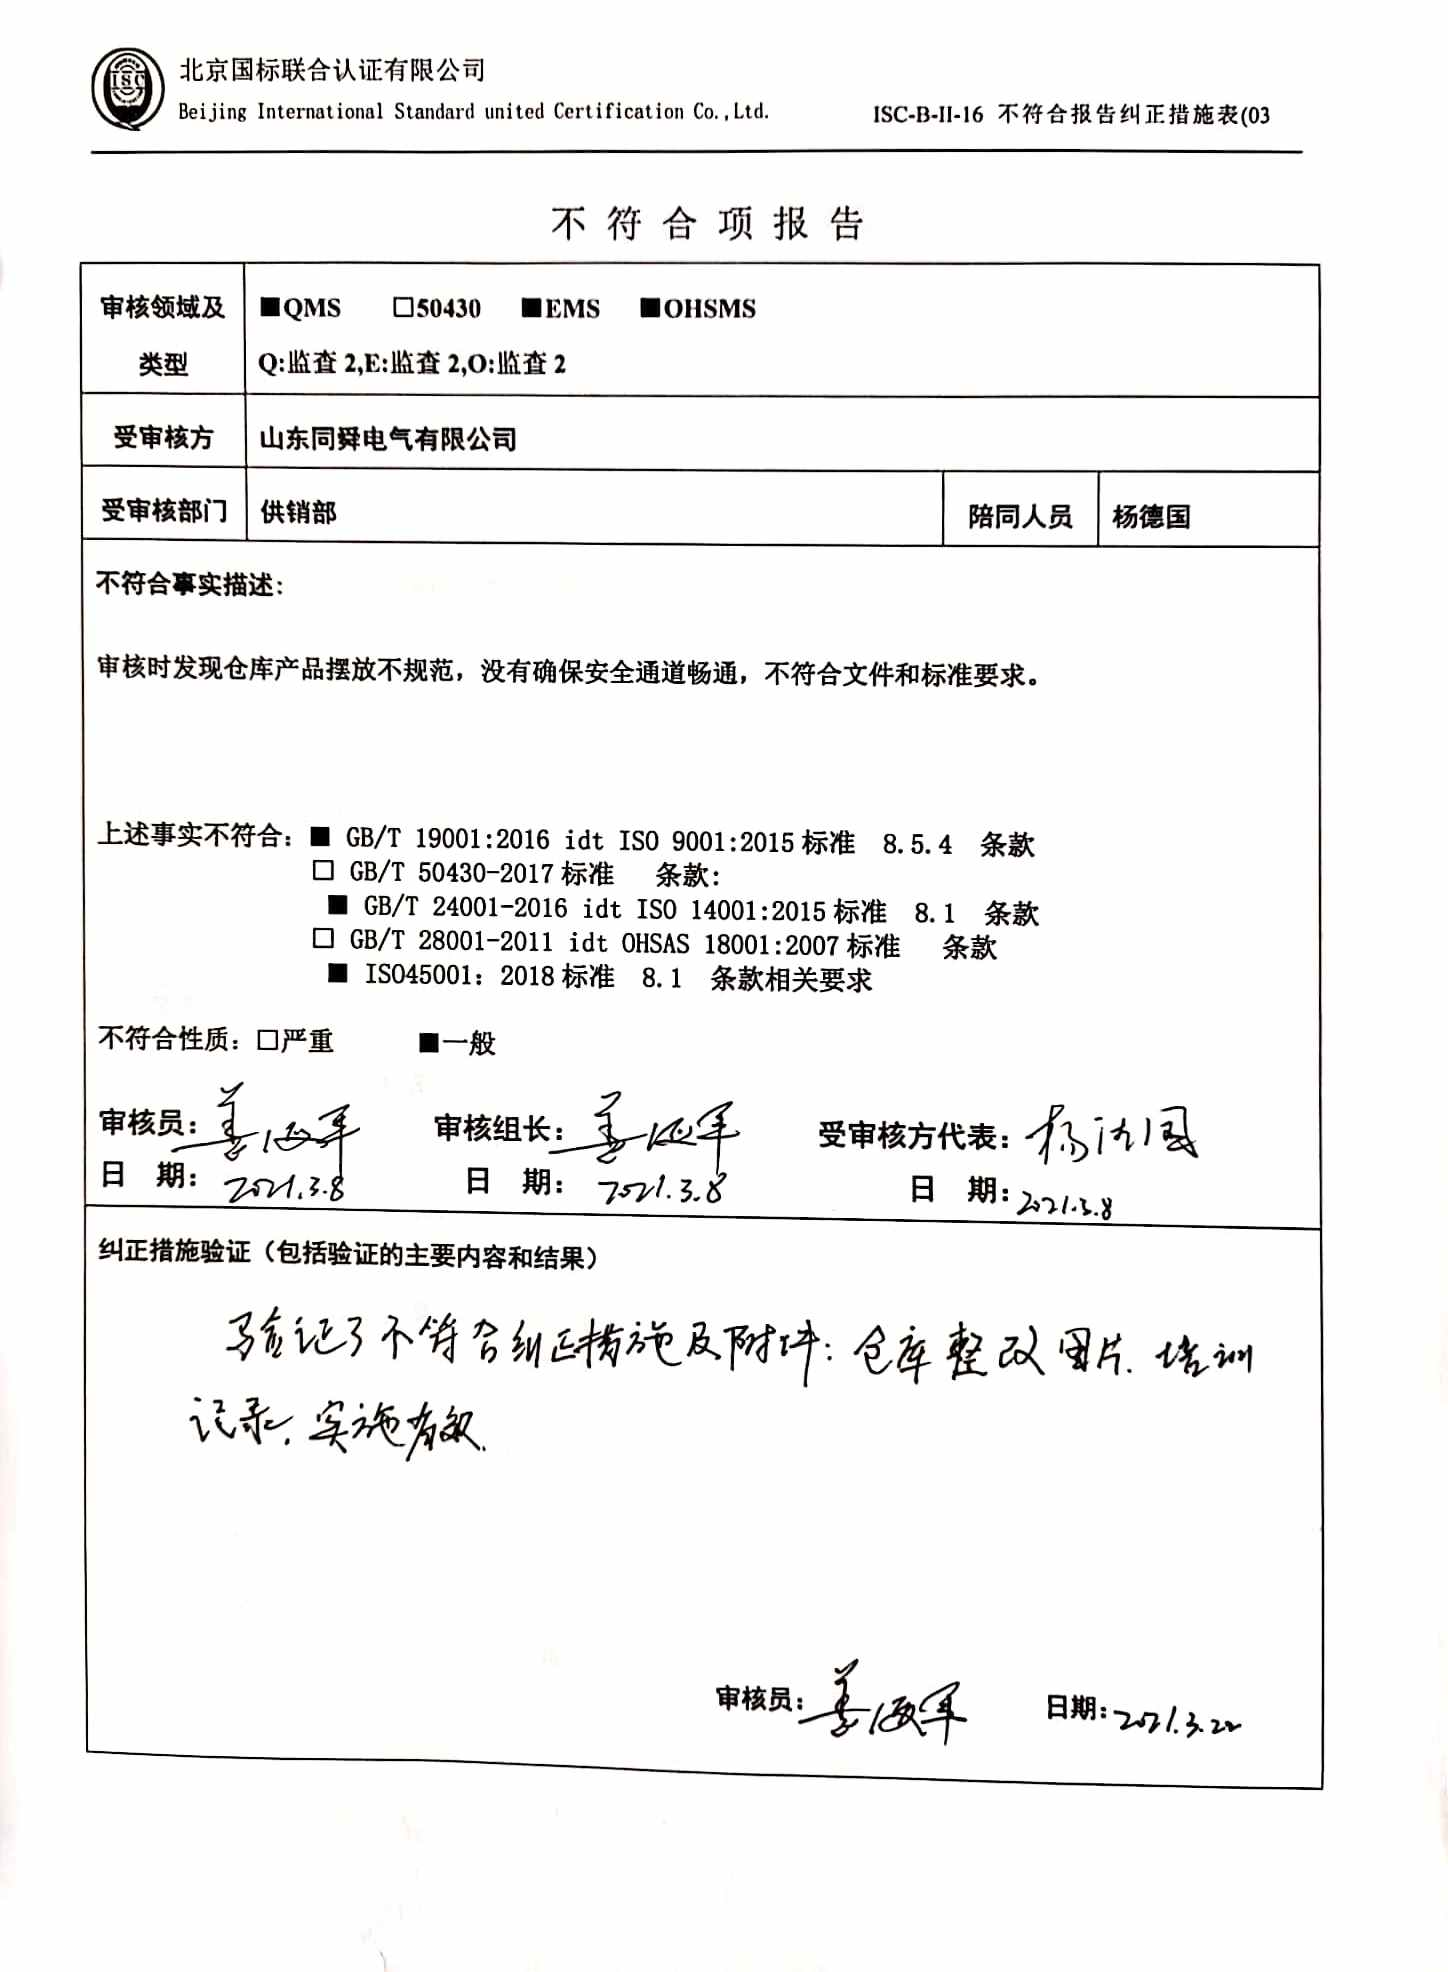 ISC
北京国标联合认证有限公司
Beijing International Standard united Certification Co.,Ltd.
ISC-B-II-16 不符合报告纠正措施表(03
不符合项报告
审核领域及类型
■QMS □50430 ■EMS ■OHSMS
Q:监查 2,E:监查 2,O:监查 2
受审核方 山东同舜电气有限公司
受审核部门 供销部 陪同人员 杨德国
不符合事实描述:
审核时发现仓库产品摆放不规范，没有确保安全通道畅通，不符合文件和标准要求。
上述事实不符合: ■ GB/T 19001:2016 idt ISO 9001:2015 标准 8.5.4 条款
□ GB/T 50430-2017 标准 条款:
■ GB/T 24001-2016 idt ISO 14001:2015 标准 8.1 条款
□ GB/T 28001-2011 idt OHSAS 18001:2007 标准 条款
■ ISO45001: 2018 标准 8.1 条款相关要求
不符合性质: □严重 ■一般
审核员: 审核组长: 受审核方代表: 杨德国
日 期: 2021.3.8 日 期: 2021.3.8 日 期: 2021.3.8
纠正措施验证（包括验证的主要内容和结果）
验证了不符合纠正措施及附件: 仓库整改图片、培训
记录，实施有效.
审核员: 日期: 2021.3.22